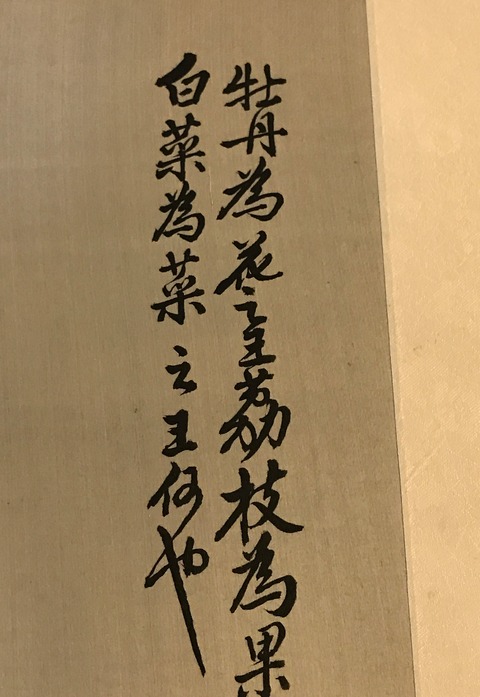 牡丹為花之王荔枝為果
白菜為菜之王何也